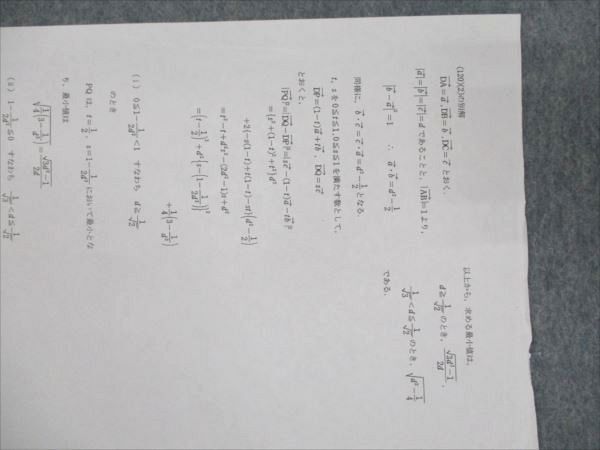 (120)(2)の別解
DA=a, DB=b, DC=c とおく。
|a|=|b|=|c|=d であることと、|AB|=1より、
|b-a|²=1 ∴ a・b=d²-1/2
同様に、b・c=c・a=d²-1/2 となる。
t, s を 0≦t≦1, 0≦s≦1 を満たす数として、
DP=(1-t)a+tb, DQ=sc
とおくと、
|PQ|²=|DQ-DP|²=|sc-(1-t)a-tb|²
={s²+(1-t)²+t²}d²
+2{-s(1-t)+t(1-t)-st}(d²-1/2)
=t²-t+d²s²-(2d²-1)s+d²
=(t-1/2)²+d²{s-(1-1/2d²)}²
+1/4(3-1/d²)
(i) 0≦1-1/2d²<1 すなわち d≧1/√2
のとき
PQは、t=1/2, s=1-1/2d² において最小とな
り、最小値は
√(1/4(3-1/d²))=√(3d²-1)/2d
(ii) 1-1/2d²≦0 すなわち 1/√3<d≦1/√2
以上から、求める最小値は、
d≧1/√2 のとき、√(3d²-1)/2d,
1/√3<d≦1/√2 のとき、√(d²-1/4)
である。